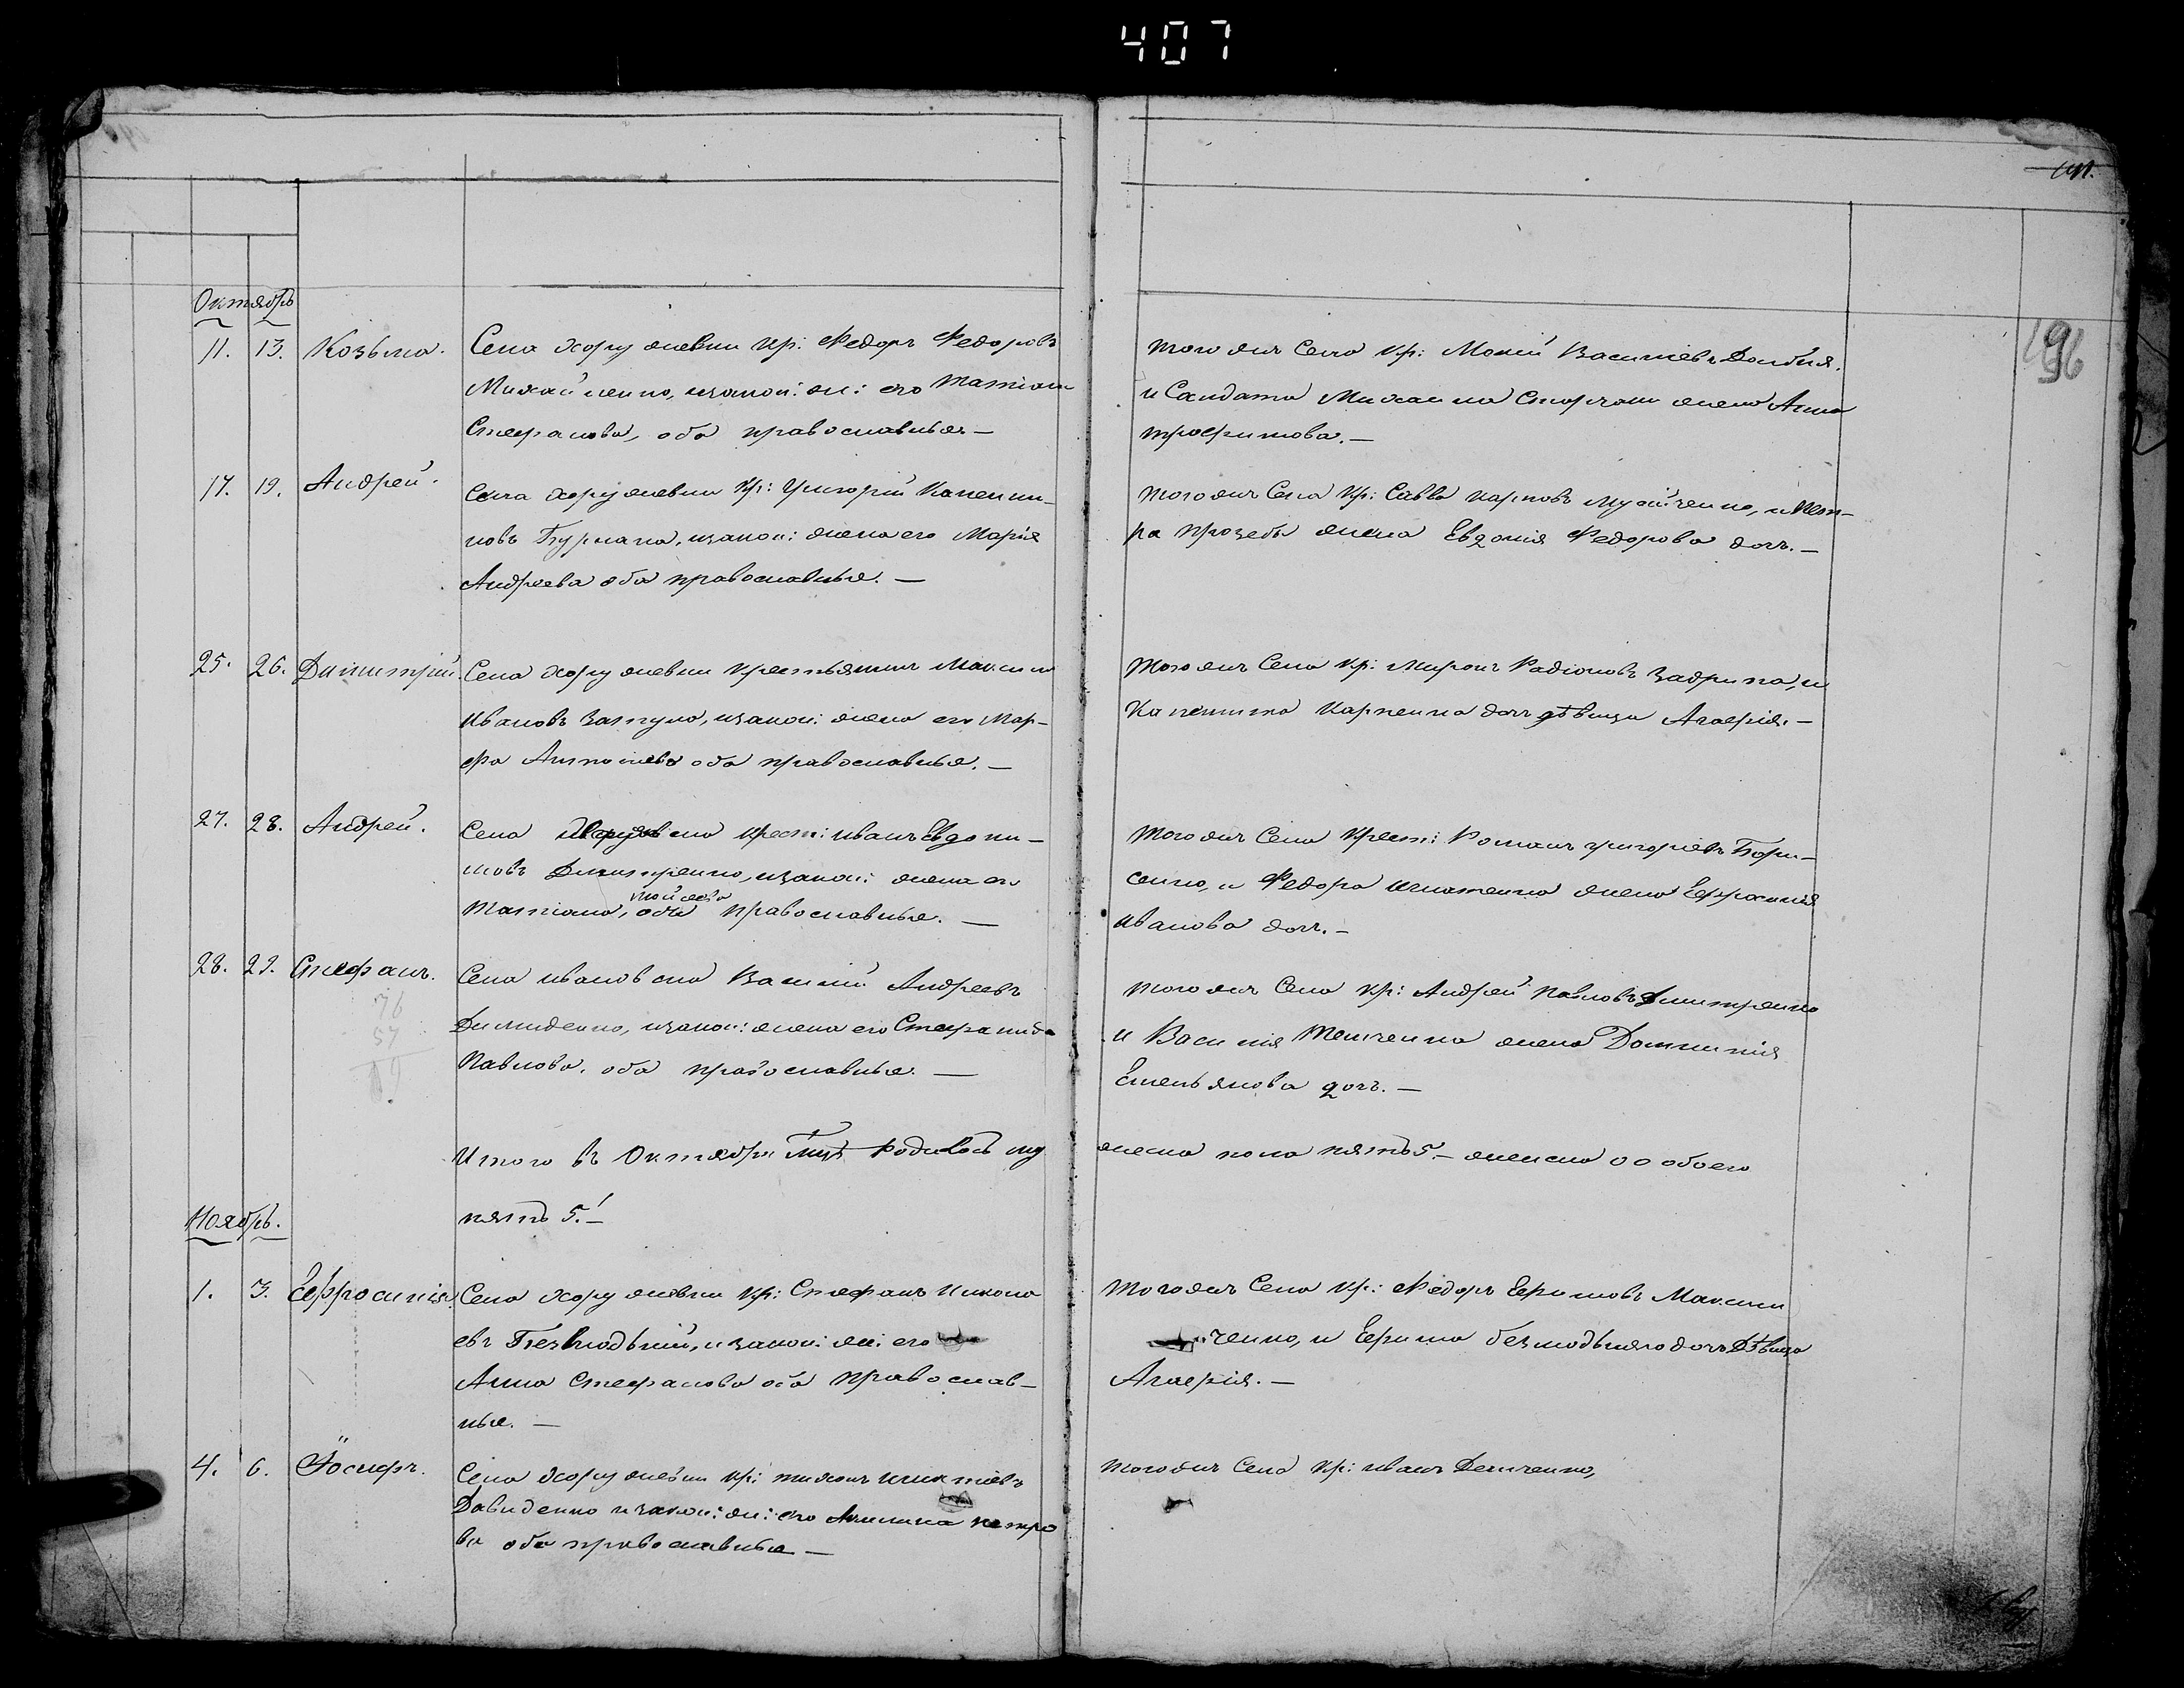 407
196
Октябрь
11. 13. Козьма.
Села Хоружевки кр: Ѳедоръ Ѳедоровъ
Михайленко, изакон: же: его Татіана
Стефанова, оба православные —
того жъ Села кр: Мокій Василіевъ Долбня.
и Солдата Михаила жена Анна
трофимова. —
17. 19. Андрей.
Села Хоружевки Кр: Григорій Калени-
ковъ Бурлака, изакон: жена его Марія
Андреева оба православные. —
того жъ Села Кр: Савва карповъ, и Пет-
ра жена Евдокія Ѳедорова доч. —
25. 26. Димитрій.
Села Хоружевки крестьянинъ Максим
Ивановъ Затула, изакон: жена его Мар-
фа Антонiева оба православные. —
Того жъ Села Кр: Миронъ Радіоновъ Задрипа, и
Калинника Карпенка доч дѣвица Агафія. —
27. 28. Андрей.
Села крест: иванъ Евдоки-
мовъ Дмитренко, изакон: жена его
Татіана, оба православные. —
Того жъ Села Крест: Романъ григоріевъ Бори-
сенко, и Ѳедора Игнатенка жена Ефросинія
иванова доч. —
28. 29. Стефанъ.
76
57
19
Села ивановка Василій Андреевъ
Демиденко, изакон: жена его Стефанида
Павлова, оба православные. —
того жъ Села Кр: Андрей Павловъ Дмитренко
и Василія жена Домникія
Емельянова доч. —
Итого въ Октябрѣ м-цѣ Родилось му
жеска пола пять 5. — женска 00 обоего
пять 5. —
Ноябрь.
1. 3. Ефросинія.
Села Хоружевки кр: Стефанъ Никола
евъ Безлюдьній, и закон: же: его
Анна Стефанова оба православ-
ные. —
того жъ Села Кр: Ѳедоръ Ефимовъ Максим
ченко, и Ефима безлюдьняго дочь Дѣвица
Агафія. —
4. 6. Іосифъ.
Села Хоружевки кр: тихонъ
Давиденко изакон: же: его Акилина петро
ва оба православные —
того жъ Села Кр: иванъ Демченко,